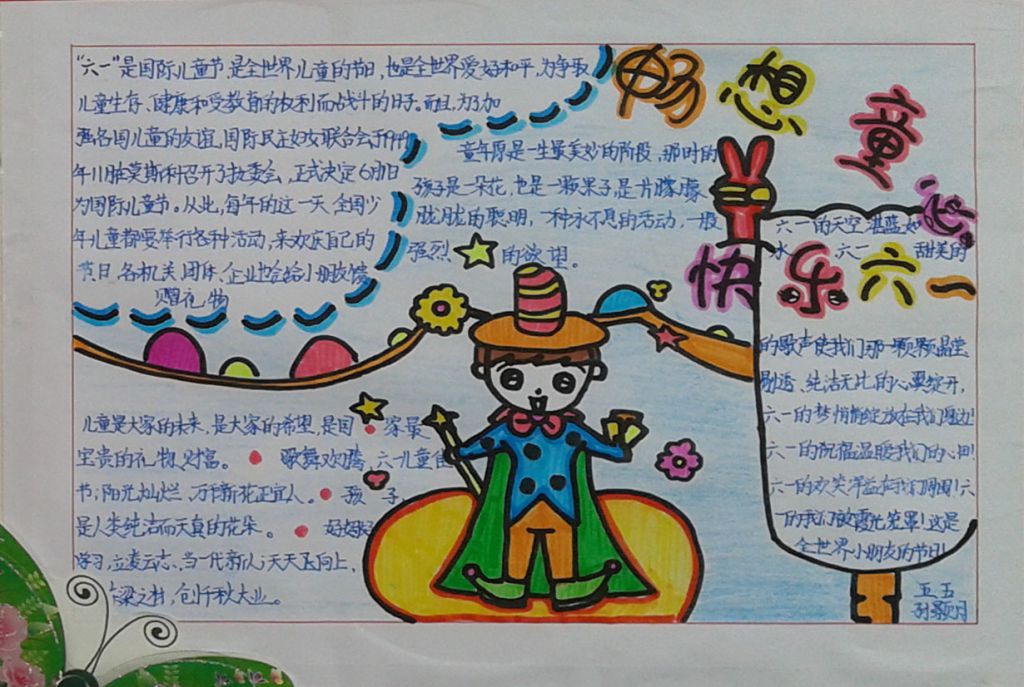 畅想童心
快乐六一
“六一”是国际儿童节,是全世界儿童的节日,也是全世界爱好和平,为争取
儿童生存、健康和受教育的权利而战斗的日子。而且,为了加
强各国儿童的友谊,国际民主妇女联合会于1949
年11月在莫斯科召开了执委会,正式决定6月1日
为国际儿童节。从此,每年的这一天,全国少
年儿童都要举行各种活动,来欢庆自己的
节日,各机关、团体、企业也会给小朋友馈
赠礼物
童年原是一生最美妙的阶段,那时的
孩子是一朵花,也是一颗果子,是一片朦朦
胧胧的聪明,一种永不息的活动,一股
强烈的欲望。
儿童是大家的未来,是大家的希望,是国家最
宝贵的礼物、财富。歌舞欢腾,六一儿童佳
节;阳光灿烂,万千新花正宜人。孩子
是人类纯洁而天真的花朵。好好
学习,立凌云志、当一代新人;天天飞向上,
梁之材,创千秋大业。
六一的天空湛蓝如
水,六一甜美的
的歌声使我们那一颗颗晶莹
剔透、纯洁无比的心翼绽开,
六一的梦悄悄绽放在我们身边!
六一的祝福温暖我们的心田!
六一的欢笑洋溢在我们周围!六
一的我们被霞光笼罩!这是
全世界小朋友的节日!
五五